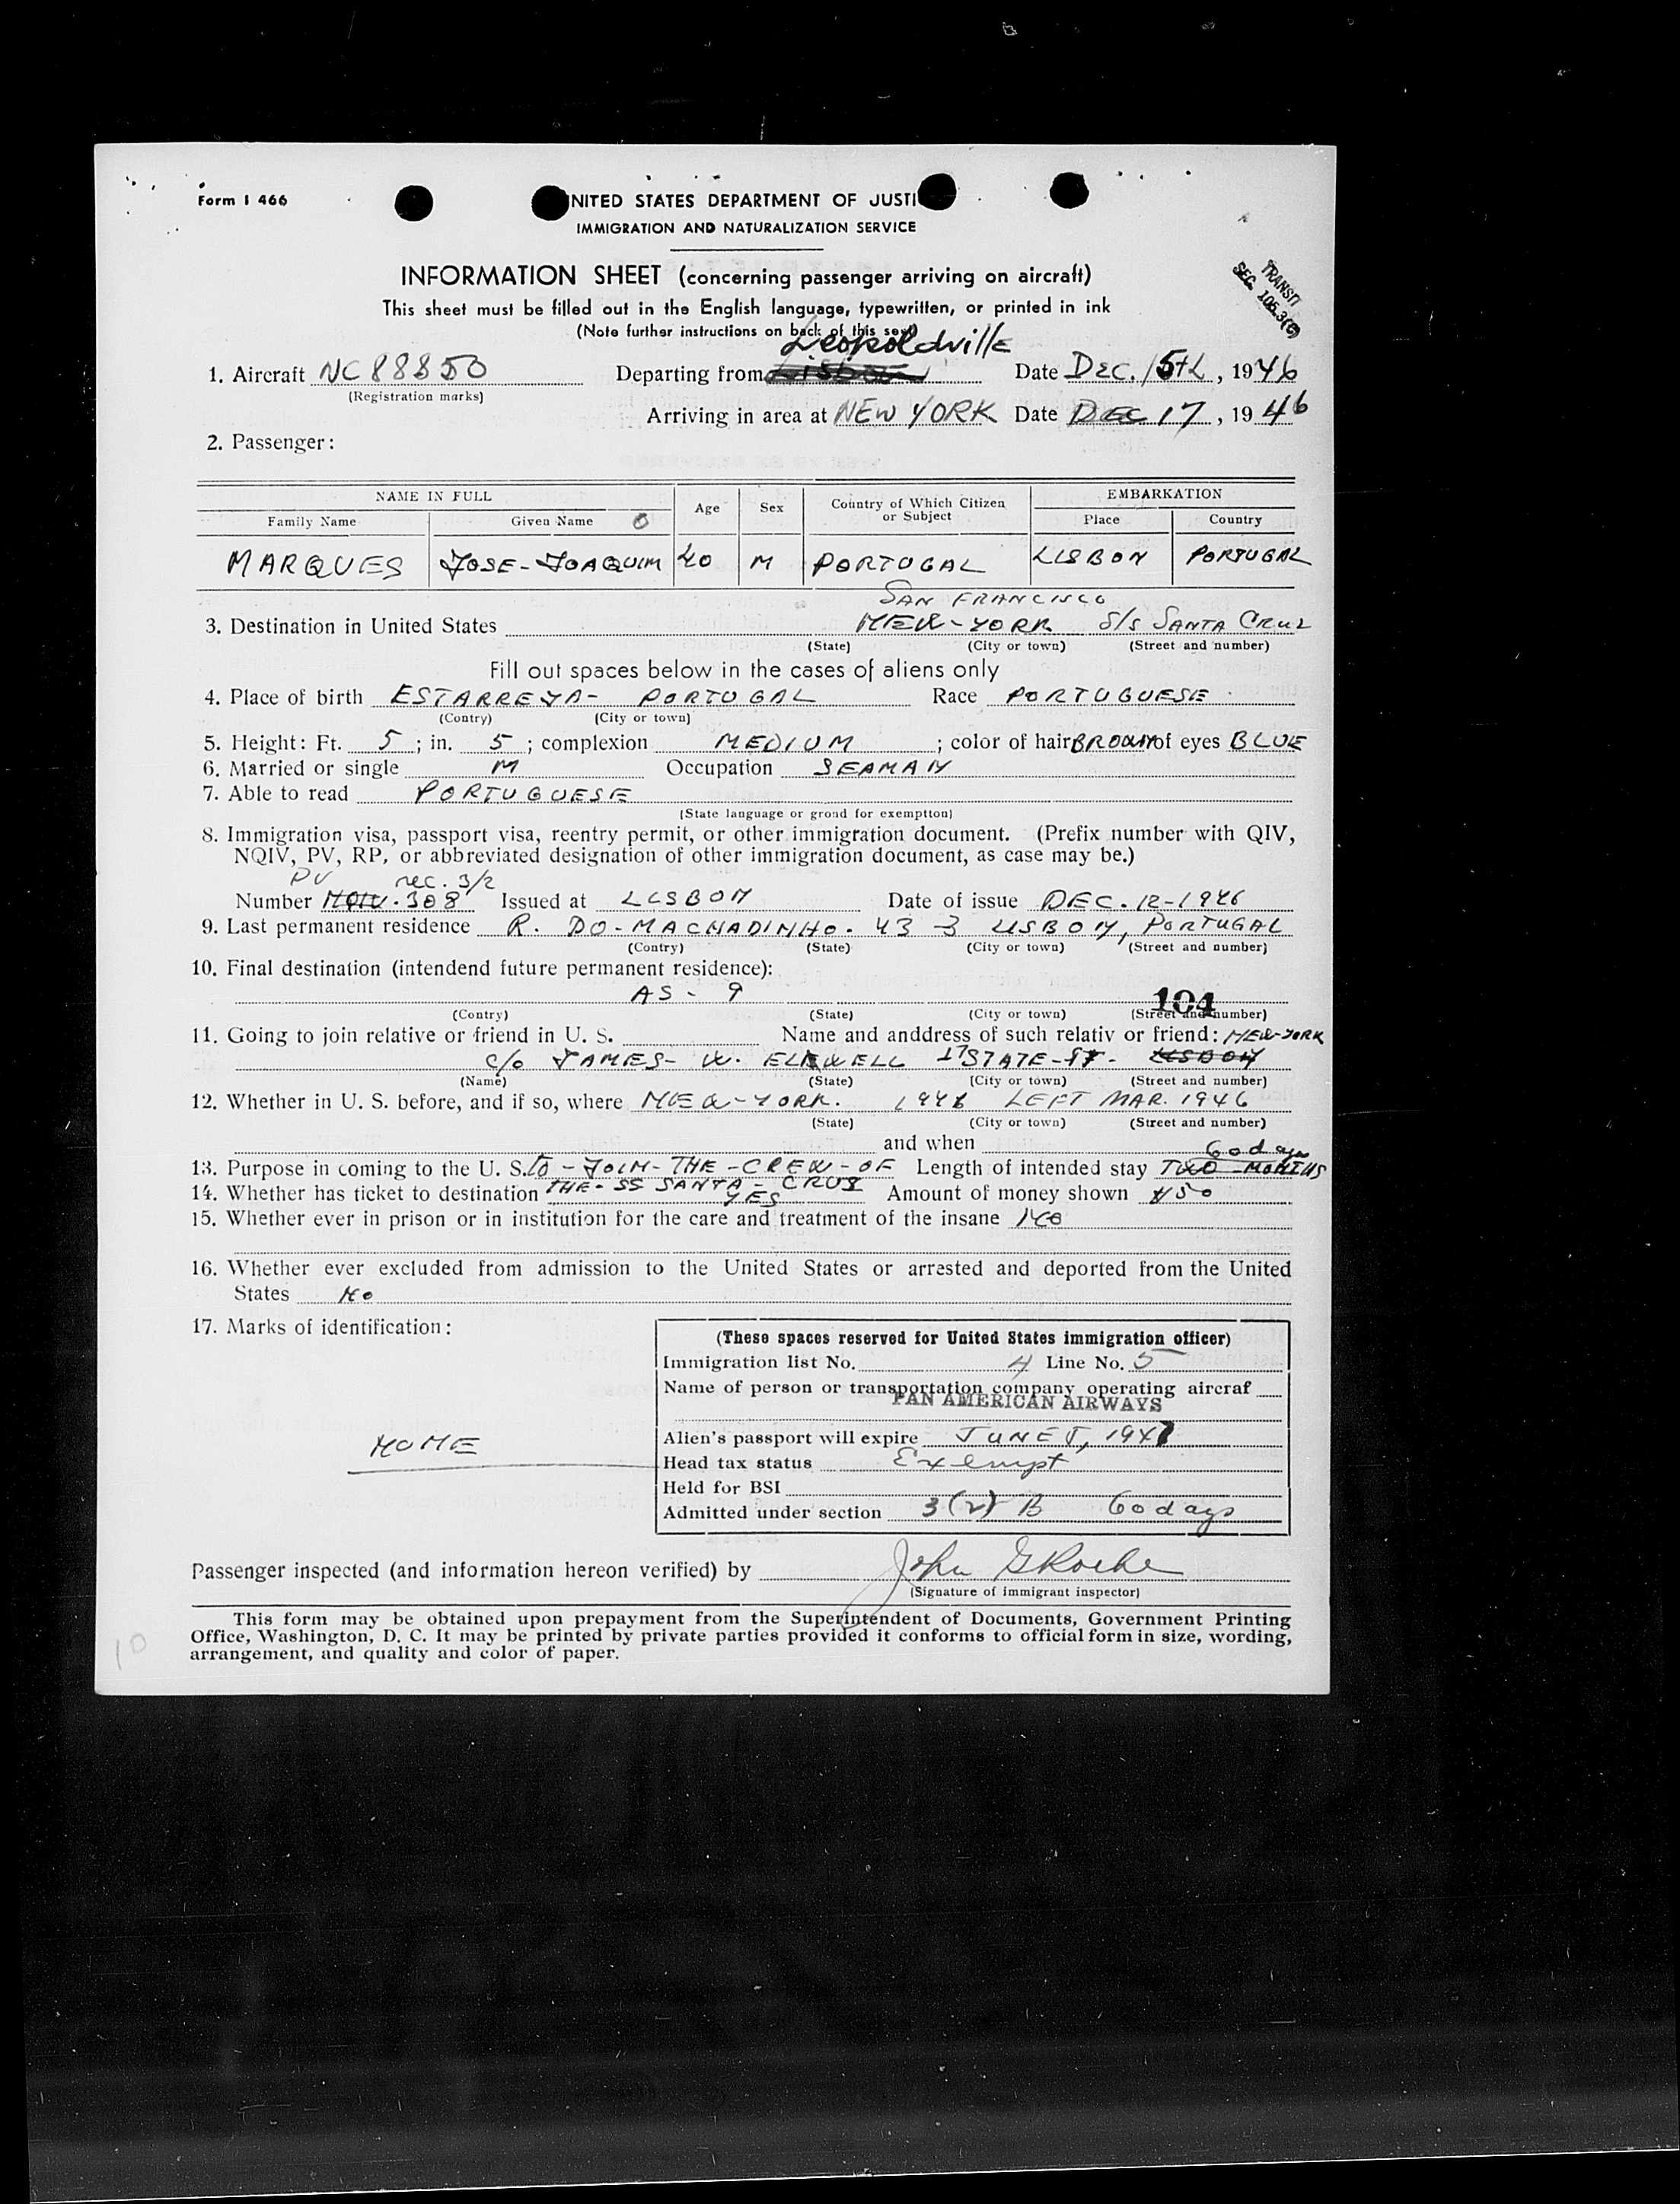 Form I 466
UNITED STATES DEPARTMENT OF JUSTI
IMMIGRATION AND NATURALIZATION SERVICE
TRANSIT
SEC. 105.3(C)
INFORMATION SHEET (concerning passenger arriving on aircraft)
This sheet must be filled out in the English language, typewritten, or printed in ink
(Note further instructions on back of this
Leopoldville
1. Aircraft NC88850 Departing from Lisbon Date DEC. 15th, 1946
(Registration marks)
Arriving in area at NEW YORK Date DEC 17, 1946
2. Passenger:
NAME IN FULL Age Sex Country of Which Citizen or Subject EMBARKATION
Family Name Given Name Place Country
MARQUES JOSE-JOAQUIM 40 M PORTUGAL LISBON PORTUGAL
SAN FRANCISCO
3. Destination in United States NEW-YORK S/S SANTA CRUZ
(State) (City or town) (Street and number)
Fill out spaces below in the cases of aliens only
4. Place of birth ESTARREJA- PORTUGAL Race PORTUGUESE
(Contry) (City or town)
5. Height: Ft. 5; in. 5; complexion MEDIUM; color of hair BROWN of eyes BLUE
6. Married or single M Occupation SEAMAN
7. Able to read PORTUGUESE
(State language or grond for exemption)
8. Immigration visa, passport visa, reentry permit, or other immigration document. (Prefix number with QIV,
NQIV, PV, RP, or abbreviated designation of other immigration document, as case may be.)
PV rec. 3/2
Number 308 Issued at LISBON Date of issue DEC. 12-1946
9. Last permanent residence R. DO-MACHADINHO. 43-3 LISBON, PORTUGAL
(Contry) (State) (City or town) (Street and number)
10. Final destination (intendend future permanent residence):
AS - 9 104
(Contry) (State) (City or town) (Street and number)
11. Going to join relative or friend in U. S. Name and anddress of such relativ or friend: NEW-YORK
c/o JAMES- W. ELWELL 17 STATE-ST- LISBON
(Name) (State) (City or town) (Street and number)
12. Whether in U. S. before, and if so, where NEW-YORK. LEFT MAR. 1946
(State) (City or town) (Street and number)
and when
60 days
13. Purpose in coming to the U. S. TO-JOIN-THE-CREW-OF Length of intended stay TWO-MONTHS
THE-SS SANTA-CRUZ
14. Whether has ticket to destination YES Amount of money shown $50
15. Whether ever in prison or in institution for the care and treatment of the insane NO
16. Whether ever excluded from admission to the United States or arrested and deported from the United
States NO
17. Marks of identification:
NONE
(These spaces reserved for United States immigration officer)
Immigration list No. 4 Line No. 5
Name of person or transportation company operating aircraf
PAN AMERICAN AIRWAYS
Alien's passport will expire JUNE 5, 1947
Head tax status Exempt
Held for BSI
Admitted under section 3(2) B 60 days
Passenger inspected (and information hereon verified) by John G Roche
(Signature of immigrant inspector)
This form may be obtained upon prepayment from the Superintendent of Documents, Government Printing
Office, Washington, D. C. It may be printed by private parties provided it conforms to official form in size, wording,
arrangement, and quality and color of paper.
10